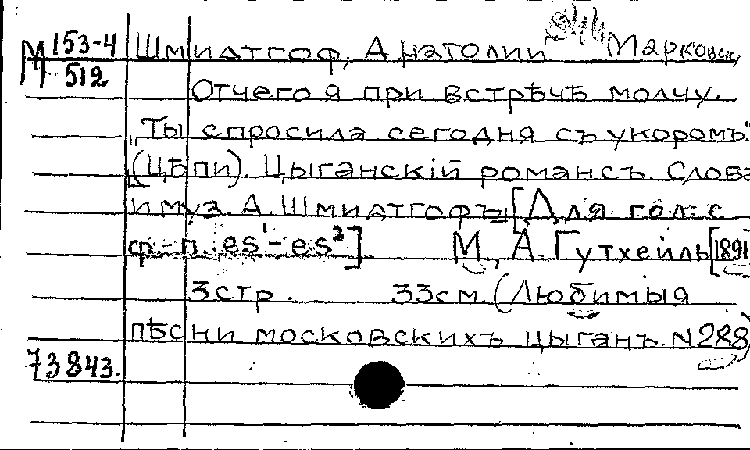 М 153-4 Шмидтгоф, Анатолий Марков.
512
Отчего я при встрѣчѣ молчу.
„Ты спросила сегодня съ укоромъ."
(Цѣпи). Цыганскій романсъ. Слова
и муз. А. Шмидтгофъ [Для гол. с
ф.-п. es¹-es²]. М., А. Гутхейль [1891]
3 стр. 33 см. (Любимыя
пѣсни московскихъ цыганъ. N 288)
73843.